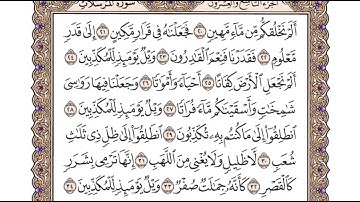 الجزء التاسع والعشرون سورة المرسلات
أَلَمْ نَخْلُقكُّم مِّن مَّآءٍ مَّهِينٍ ٢٠ فَجَعَلْنَٰهُ فِى قَرَارٍ مَّكِينٍ ٢١ إِلَىٰ قَدَرٍ
مَّعْلُومٍ ٢٢ فَقَدَرْنَا فَنِعْمَ ٱلْقَٰدِرُونَ ٢٣ وَيْلٌ يَوْمَئِذٍ لِّلْمُكَذِّبِينَ ٢٤
أَلَمْ نَجْعَلِ ٱلْأَرْضَ كِفَاتًا ٢٥ أَحْيَآءً وَأَمْوَٰتًا ٢٦ وَجَعَلْنَا فِيهَا رَوَٰسِىَ
شَٰمِخَٰتٍ وَأَسْقَيْنَٰكُم مَّآءً فُرَاتًا ٢٧ وَيْلٌ يَوْمَئِذٍ لِّلْمُكَذِّبِينَ ٢٨
ٱنطَلِقُوٓا۟ إِلَىٰ مَا كُنتُم بِهِۦ تُكَذِّبُونَ ٢٩ ٱنطَلِقُوٓا۟ إِلَىٰ ظِلٍّ ذِى ثَلَٰثِ
شُعَبٍ ٣٠ لَّا ظَلِيلٍ وَلَا يُغْنِى مِنَ ٱللَّهَبِ ٣١ إِنَّهَا تَرْمِى بِشَرَرٍ
كَٱلْقَصْرِ ٣٢ كَأَنَّهُۥ جِمَٰلَتٌ صُفْرٌ ٣٣ وَيْلٌ يَوْمَئِذٍ لِّلْمُكَذِّبِينَ ٣٤